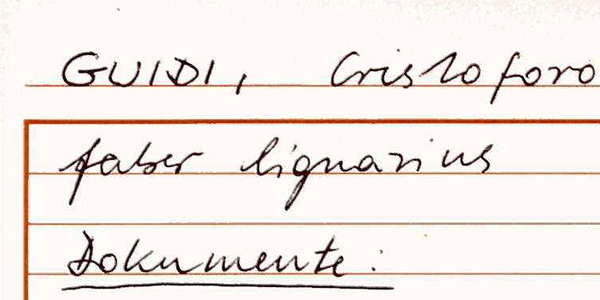 GUIDI, Cristoforo
faber lignarius
Dokumente: